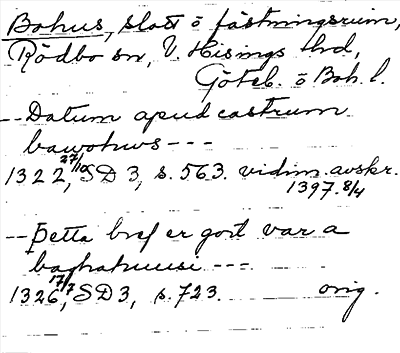 Bohus, slott o fästningsruin,
Rödbo sn, V. Hisings hd,
Göteb. o Boh. l.
-- Datum apud castrum
bawohws ---
1322 27/10, SD 3, s. 563. vidim. avskr.
1397. 8/4
-- Þetta bref er gort var a
bagahuusi ---
1326 17/7, SD 3, s. 723. orig.